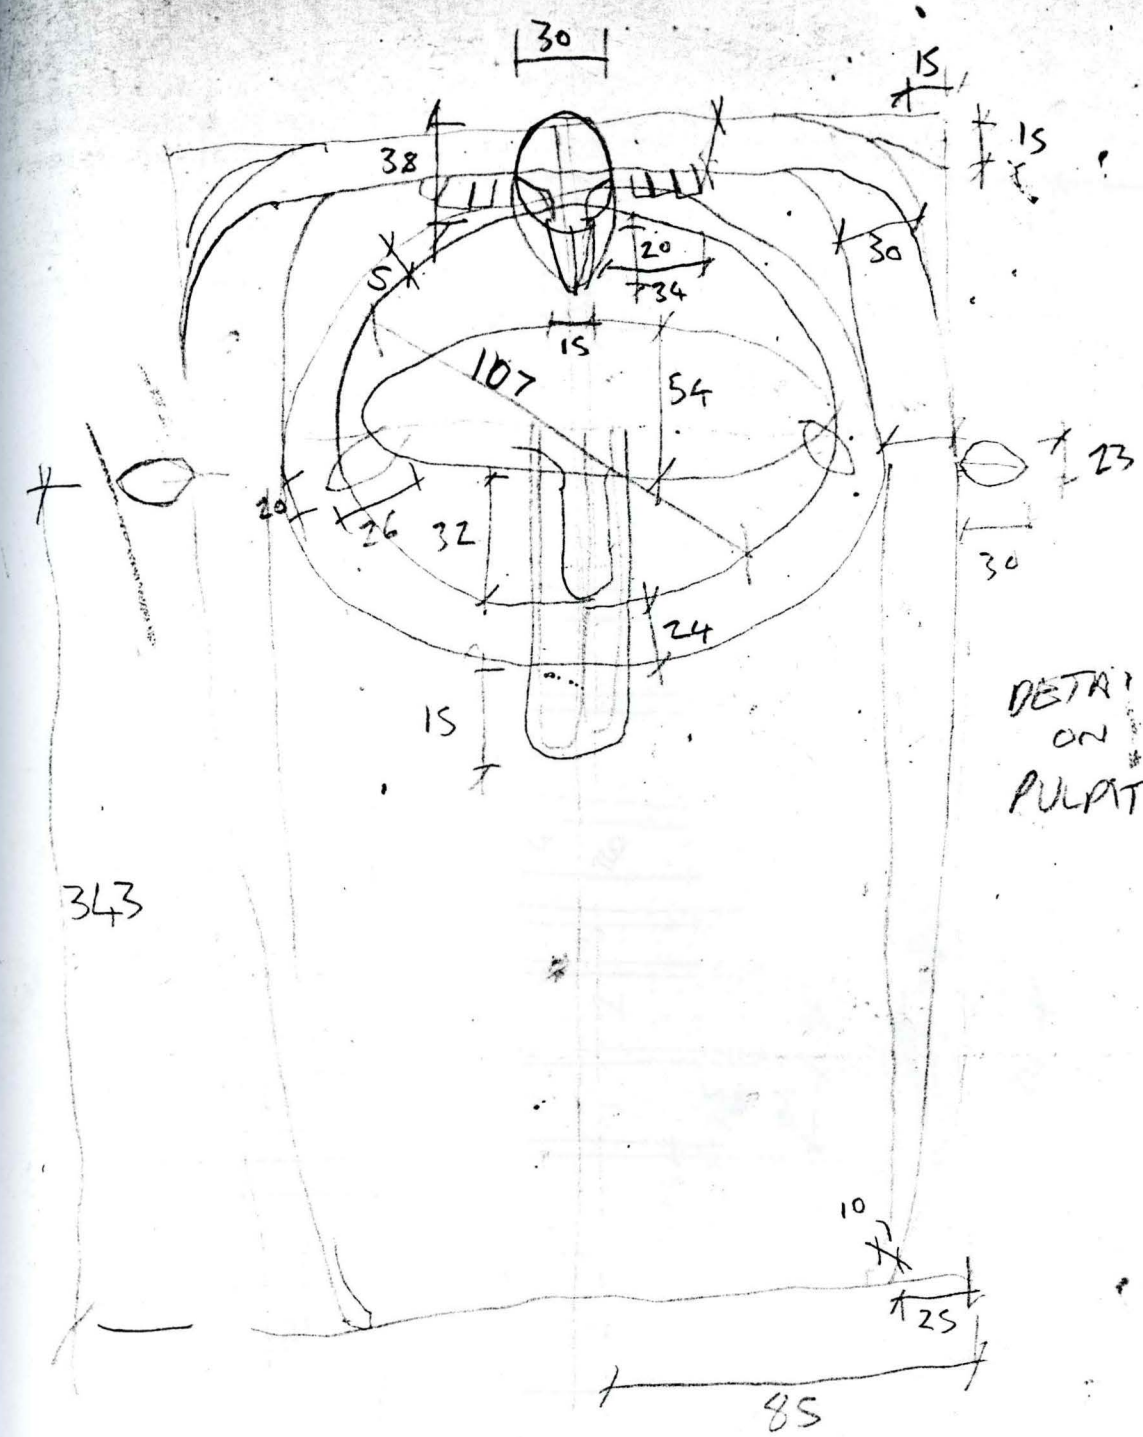 30
15
38
15
30
5
20
34
15
107
54
23
20
26
32
30
24
15
DETAI
ON
PULPIT
343
10
25
85